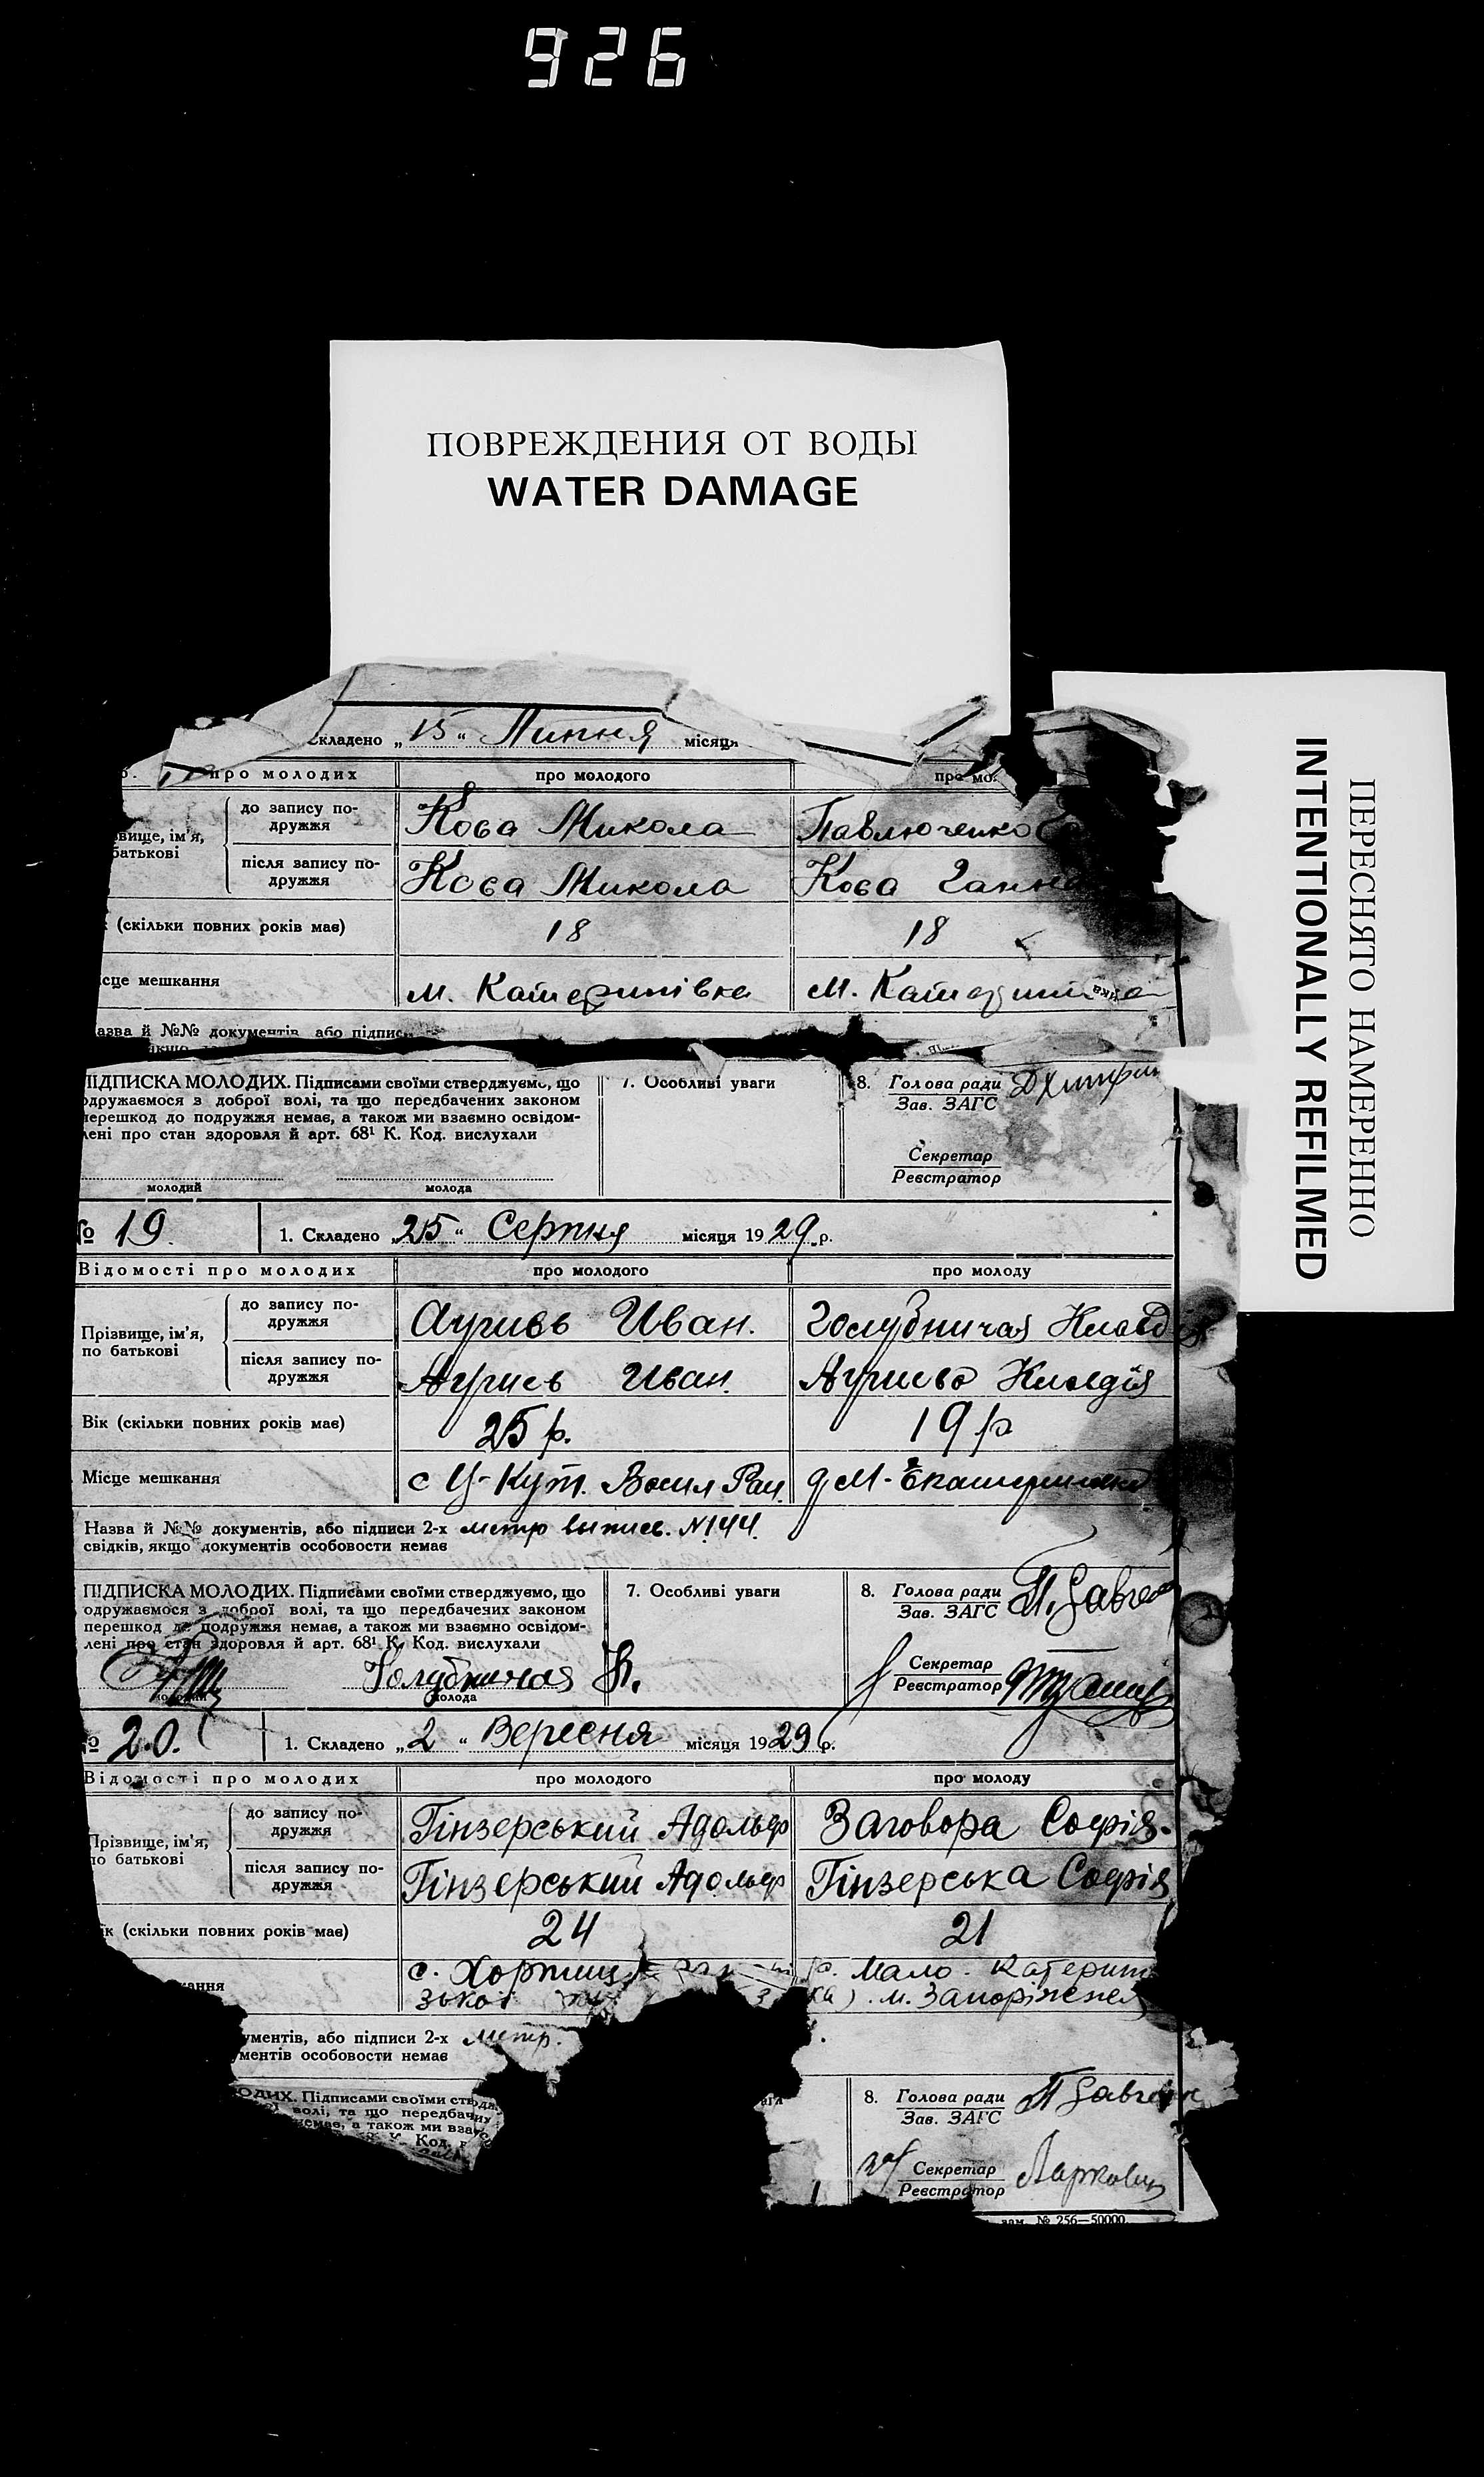 926
ПОВРЕЖДЕНИЯ ОТ ВОДЫ
WATER DAMAGE
ПЕРЕСНЯТО НАМЕРЕННО
INTENTIONALLY REFILMED
Складено „15“ Липня місяця
про молодих про молодого про мо
до запису по-
дружжя
Кова Микола Павлюченко
вище, ім'я,
батькові
після запису по-
дружжя
Кова Микола Кова Ганна
(скільки повних років має) 18 18
сце мешкання м. Катеринівка м. Катеринівка
азва й №№ документів, або підпис
ПІДПИСКА МОЛОДИХ. Підписами своїми стверджуємо, що
одружаємося з доброї волі, та що передбачених законом
перешкод до подружжя немає, а також ми взаємно освідом-
лені про стан здоровля й арт. 68¹ К. Код. вислухали
молодий молода
7. Особливі уваги
8. Голова ради
Зав. ЗАГС
Секретар
Реєстратор
№ 19. 1. Складено „25“ Серпня місяця 1929 р.
Відомості про молодих про молодого про молоду
Прізвище, ім'я,
по батькові
до запису по-
дружжя
Иван. Голубничая Клавд
після запису по-
дружжя
Иван. Клавдія
Вік (скільки повних років має) 25 р. 19 р
Місце мешкання с Ц-Кут. Васил Рай.
Назва й №№ документів, або підписи 2-х метр выпис. N144.
свідків, якщо документів особовости немає
ПІДПИСКА МОЛОДИХ. Підписами своїми стверджуємо, що
одружаємося з доброї волі, та що передбачених законом
перешкод до подружжя немає, а також ми взаємно освідом-
лені про стан здоровля й арт. 68¹ К. Код. вислухали
Голубничая К.
молодий молода
7. Особливі уваги
8. Голова ради
Зав. ЗАГС
Секретар
Реєстратор
№ 20. 1. Складено „2“ Вересня місяця 1929 р.
Відомості про молодих про молодого про молоду
Прізвище, ім'я,
по батькові
до запису по-
дружжя
Гінзерський Адольф Заговора Софія.
після запису по-
дружжя
Гінзерський Адольф Гінзерська Софія
ік (скільки повних років має) 24 21
кання с. Хортиц с. Мало. Катерин
зької ка). м. Запоріжжя
ументів, або підписи 2-х метр.
ментів особовости немає
ОДИХ. Підписами своїми ствердж
волі, та що передбачених
немає, а також ми взаєм
К. Код. в
8. Голова ради
Зав. ЗАГС
Секретар
Реєстратор
зам. № 256—50000.